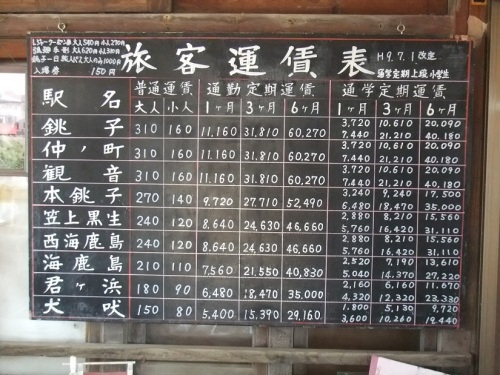 旅客運賃表
H9.7.1改定
通学定期上段小学生
入場券 150円
駅名 普通運賃 通勤定期運賃 通学定期運賃
大人 小人 1ヶ月 3ヶ月 6ヶ月 1ヶ月 3ヶ月 6ヶ月
3,720 10,610 20,090
銚子 310 160 11,160 31,810 60,270 7,440 21,210 40,180
3,720 10,610 20,090
仲ノ町 310 160 11,160 31,810 60,270 7,440 21,210 40,180
3,720 10,610 20,090
観音 310 160 11,160 31,810 60,270 7,440 21,210 40,180
3,240 9,240 17,500
本銚子 270 140 9,720 27,710 52,490 6,480 18,470 35,000
2,880 8,210 15,560
笠上黒生 240 120 8,640 24,630 46,660 5,760 16,420 31,110
2,880 8,210 15,560
西海鹿島 240 120 8,640 24,630 46,660 5,760 16,420 31,110
2,520 7,190 13,610
海鹿島 210 110 7,560 21,550 40,830 5,040 14,370 27,220
2,160 6,160 11,670
君ヶ浜 180 90 6,480 18,470 35,000 4,320 12,320 23,330
1,800 5,130 9,720
犬吠 150 80 5,400 15,390 29,160 3,600 10,260 19,440